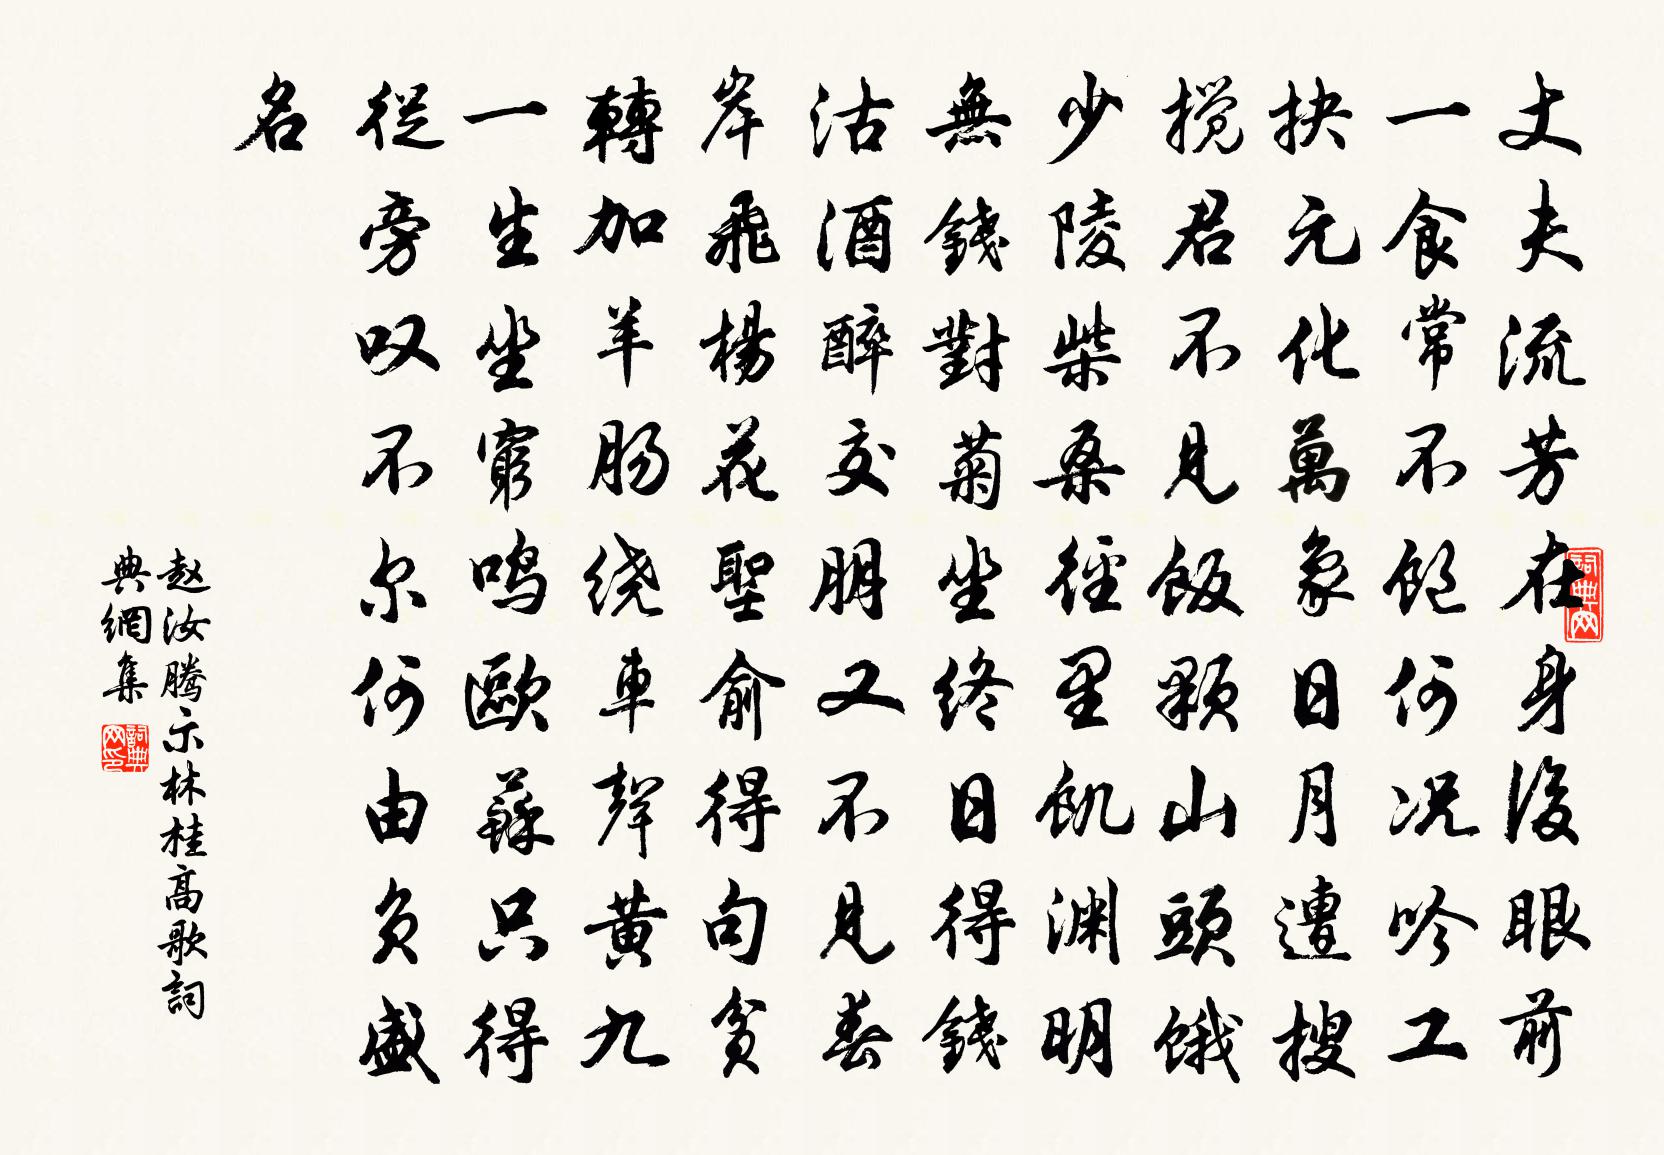 丈夫流芳在身後眼前
一食常不飽何况吟工
抉元化萬象日月遭搜
攪君不見飯顆山頭餓
少陵柴桑徑里飢渊明
無錢對菊坐終日得錢
沽酒醉交朋又不見春
岸飛楊花聖俞得句貧
轉加羊腸绕車聲黄九
一生坐窮鸣歐蘇只得
從旁叹不尔何由负盛
名
赵汝腾示林桂高歌詞
典網集
詞典网
詞典网印